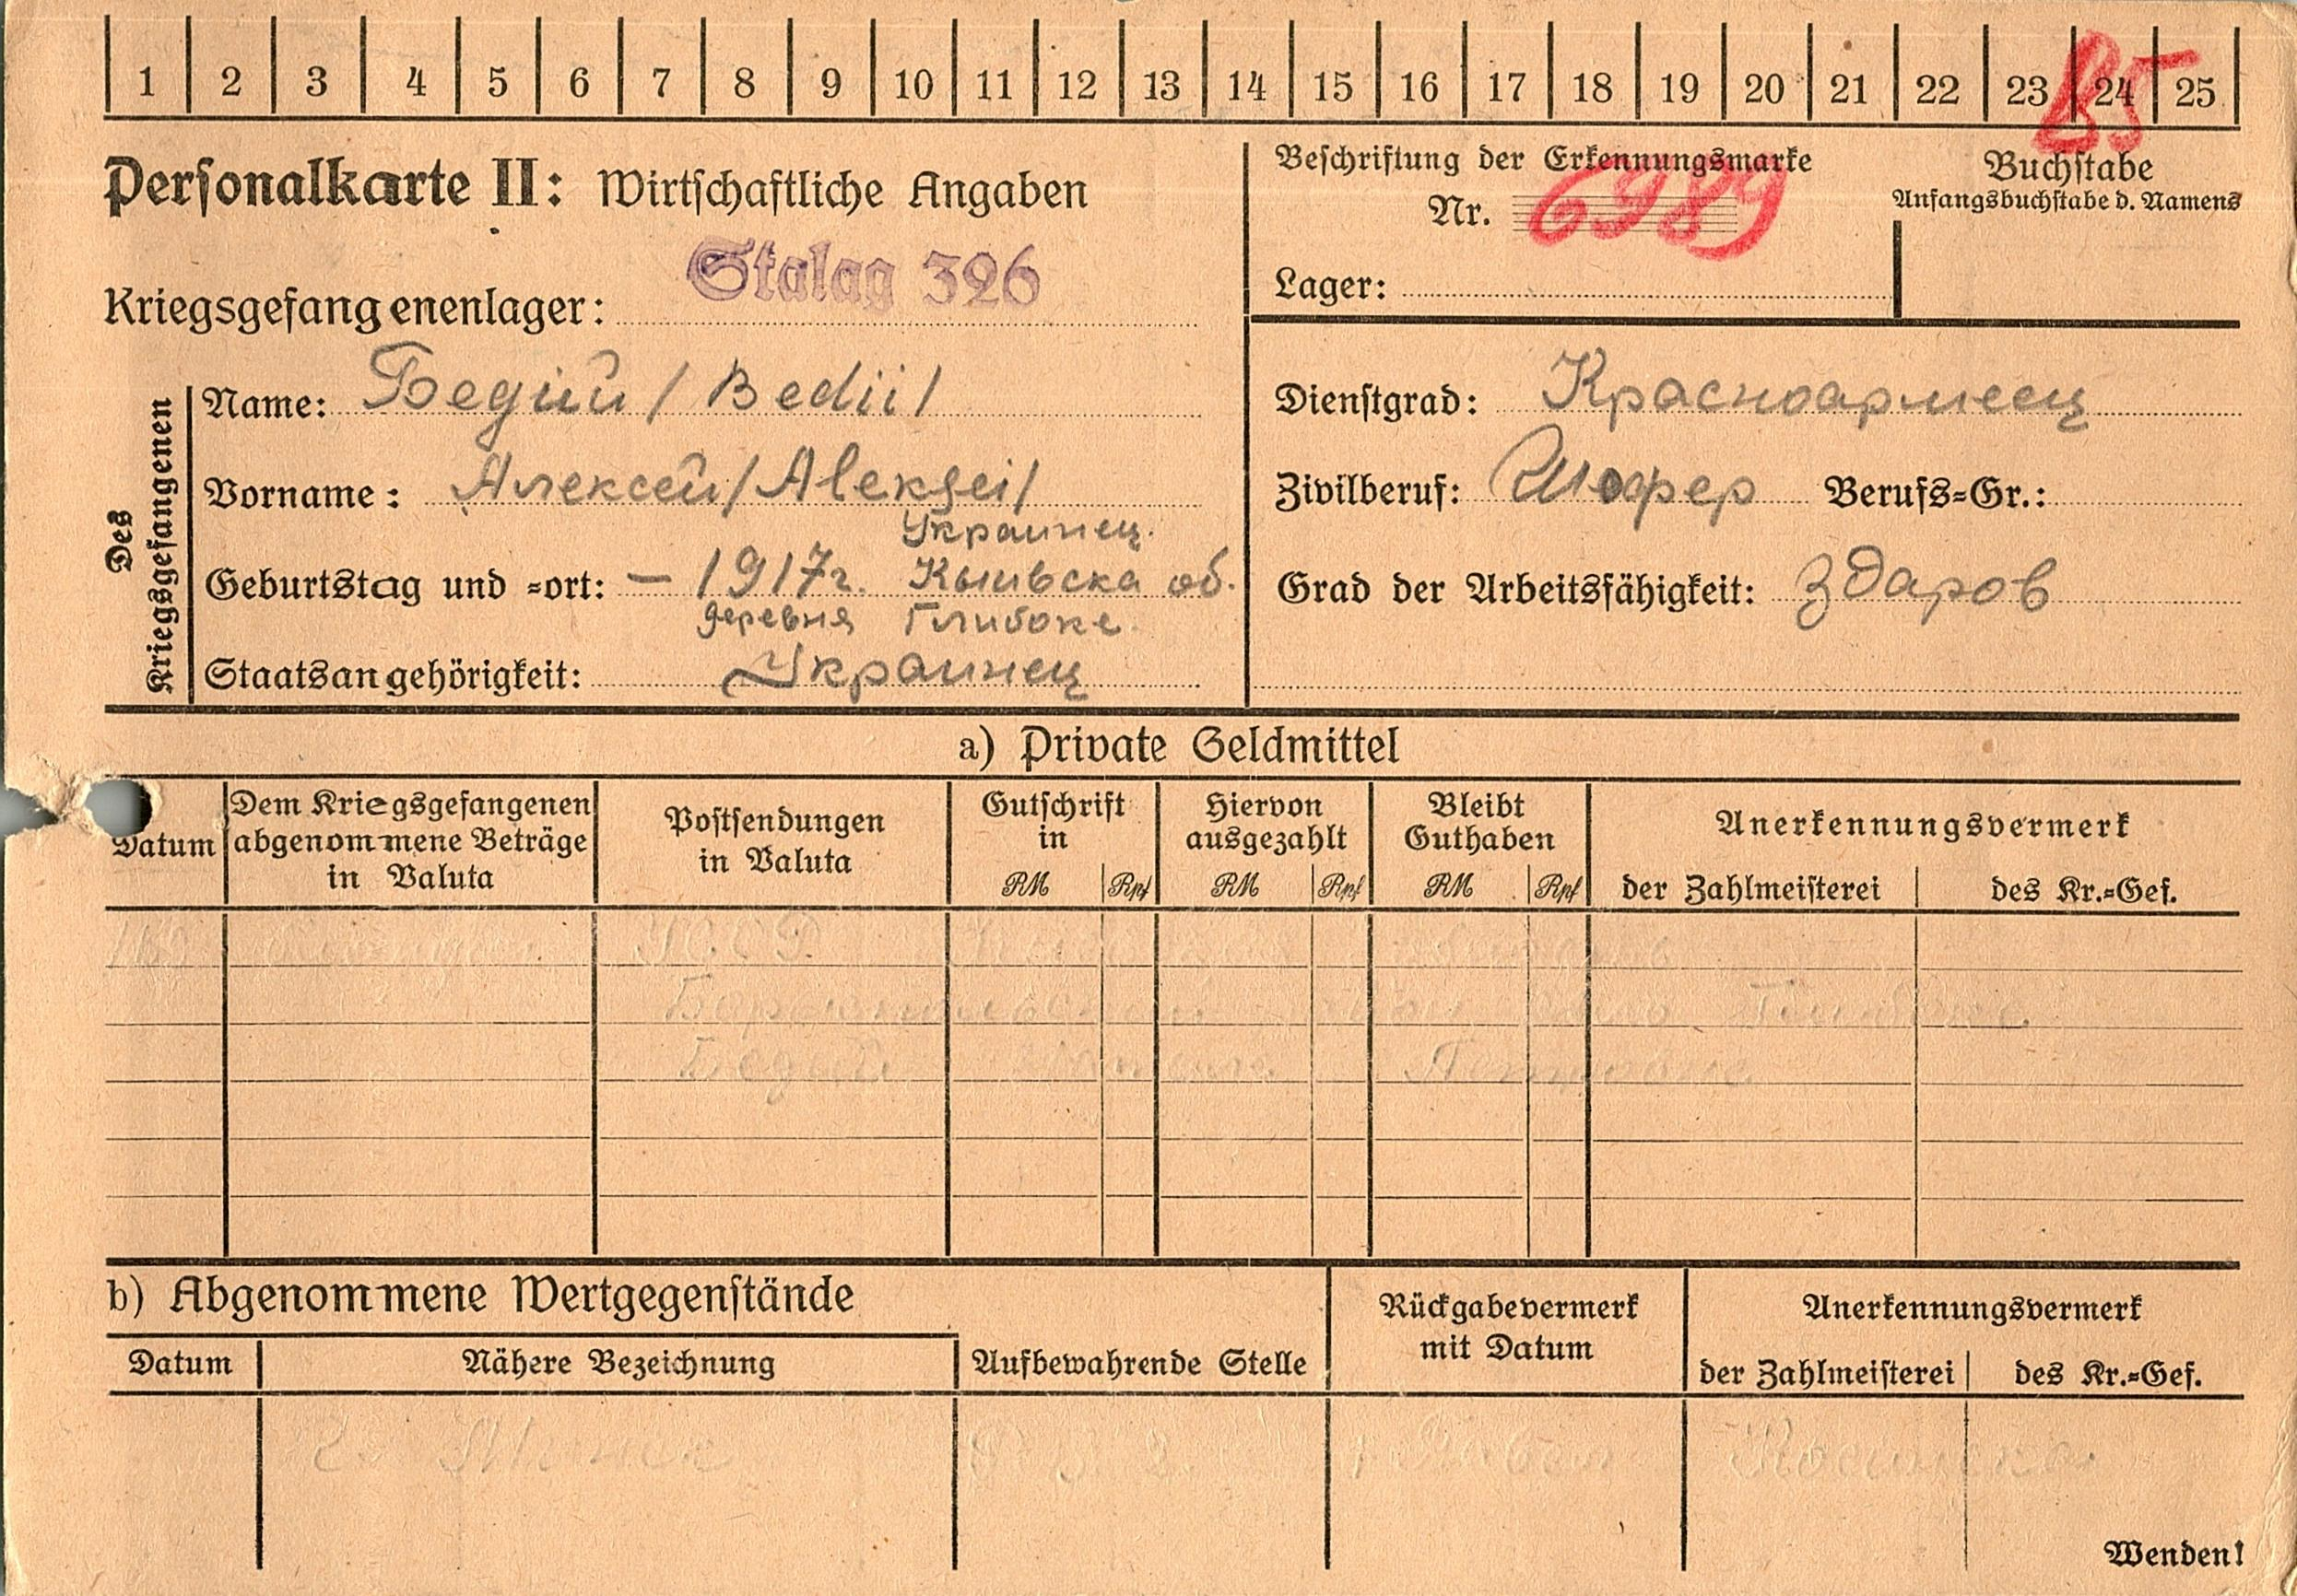 1 2 3 4 5 6 7 8 9 10 11 12 13 14 15 16 17 18 19 20 21 22 23 24 25
Personalkarte II: Wirtschaftliche Angaben
Stalag 326
Kriegsgefangenenlager:
Beschriftung der Erkennungsmarke
Nr. 6989
Lager:
Buchstabe
Anfangsbuchstabe d. Namens
Des Kriegsgefangenen
Name: Бедіий / Bedii /
Vorname: Алексей / Aleksei /
Украинец.
Geburtstag und =ort: – 1917г. Кыивска об.
деревня Глибоке.
Staatsangehörigkeit: Украинец
Dienstgrad: Красноармеец
Zivilberuf: Шофер Berufs=Gr.:
Grad der Arbeitsfähigkeit: Здаров
a) Private Geldmittel
Datum
Dem Kriegsgefangenen
abgenommene Beträge
in Valuta
Postsendungen
in Valuta
Gutschrift
in
RM Rpf
Hiervon
ausgezahlt
RM Rpf
Bleibt
Guthaben
RM Rpf
Anerkennungsvermerk
der Zahlmeisterei des Kr.=Gef.
b) Abgenommene Wertgegenstände
Datum Nähere Bezeichnung Aufbewahrende Stelle
Rückgabevermerk
mit Datum
Anerkennungsvermerk
der Zahlmeisterei des Kr.=Gef.
Wenden!